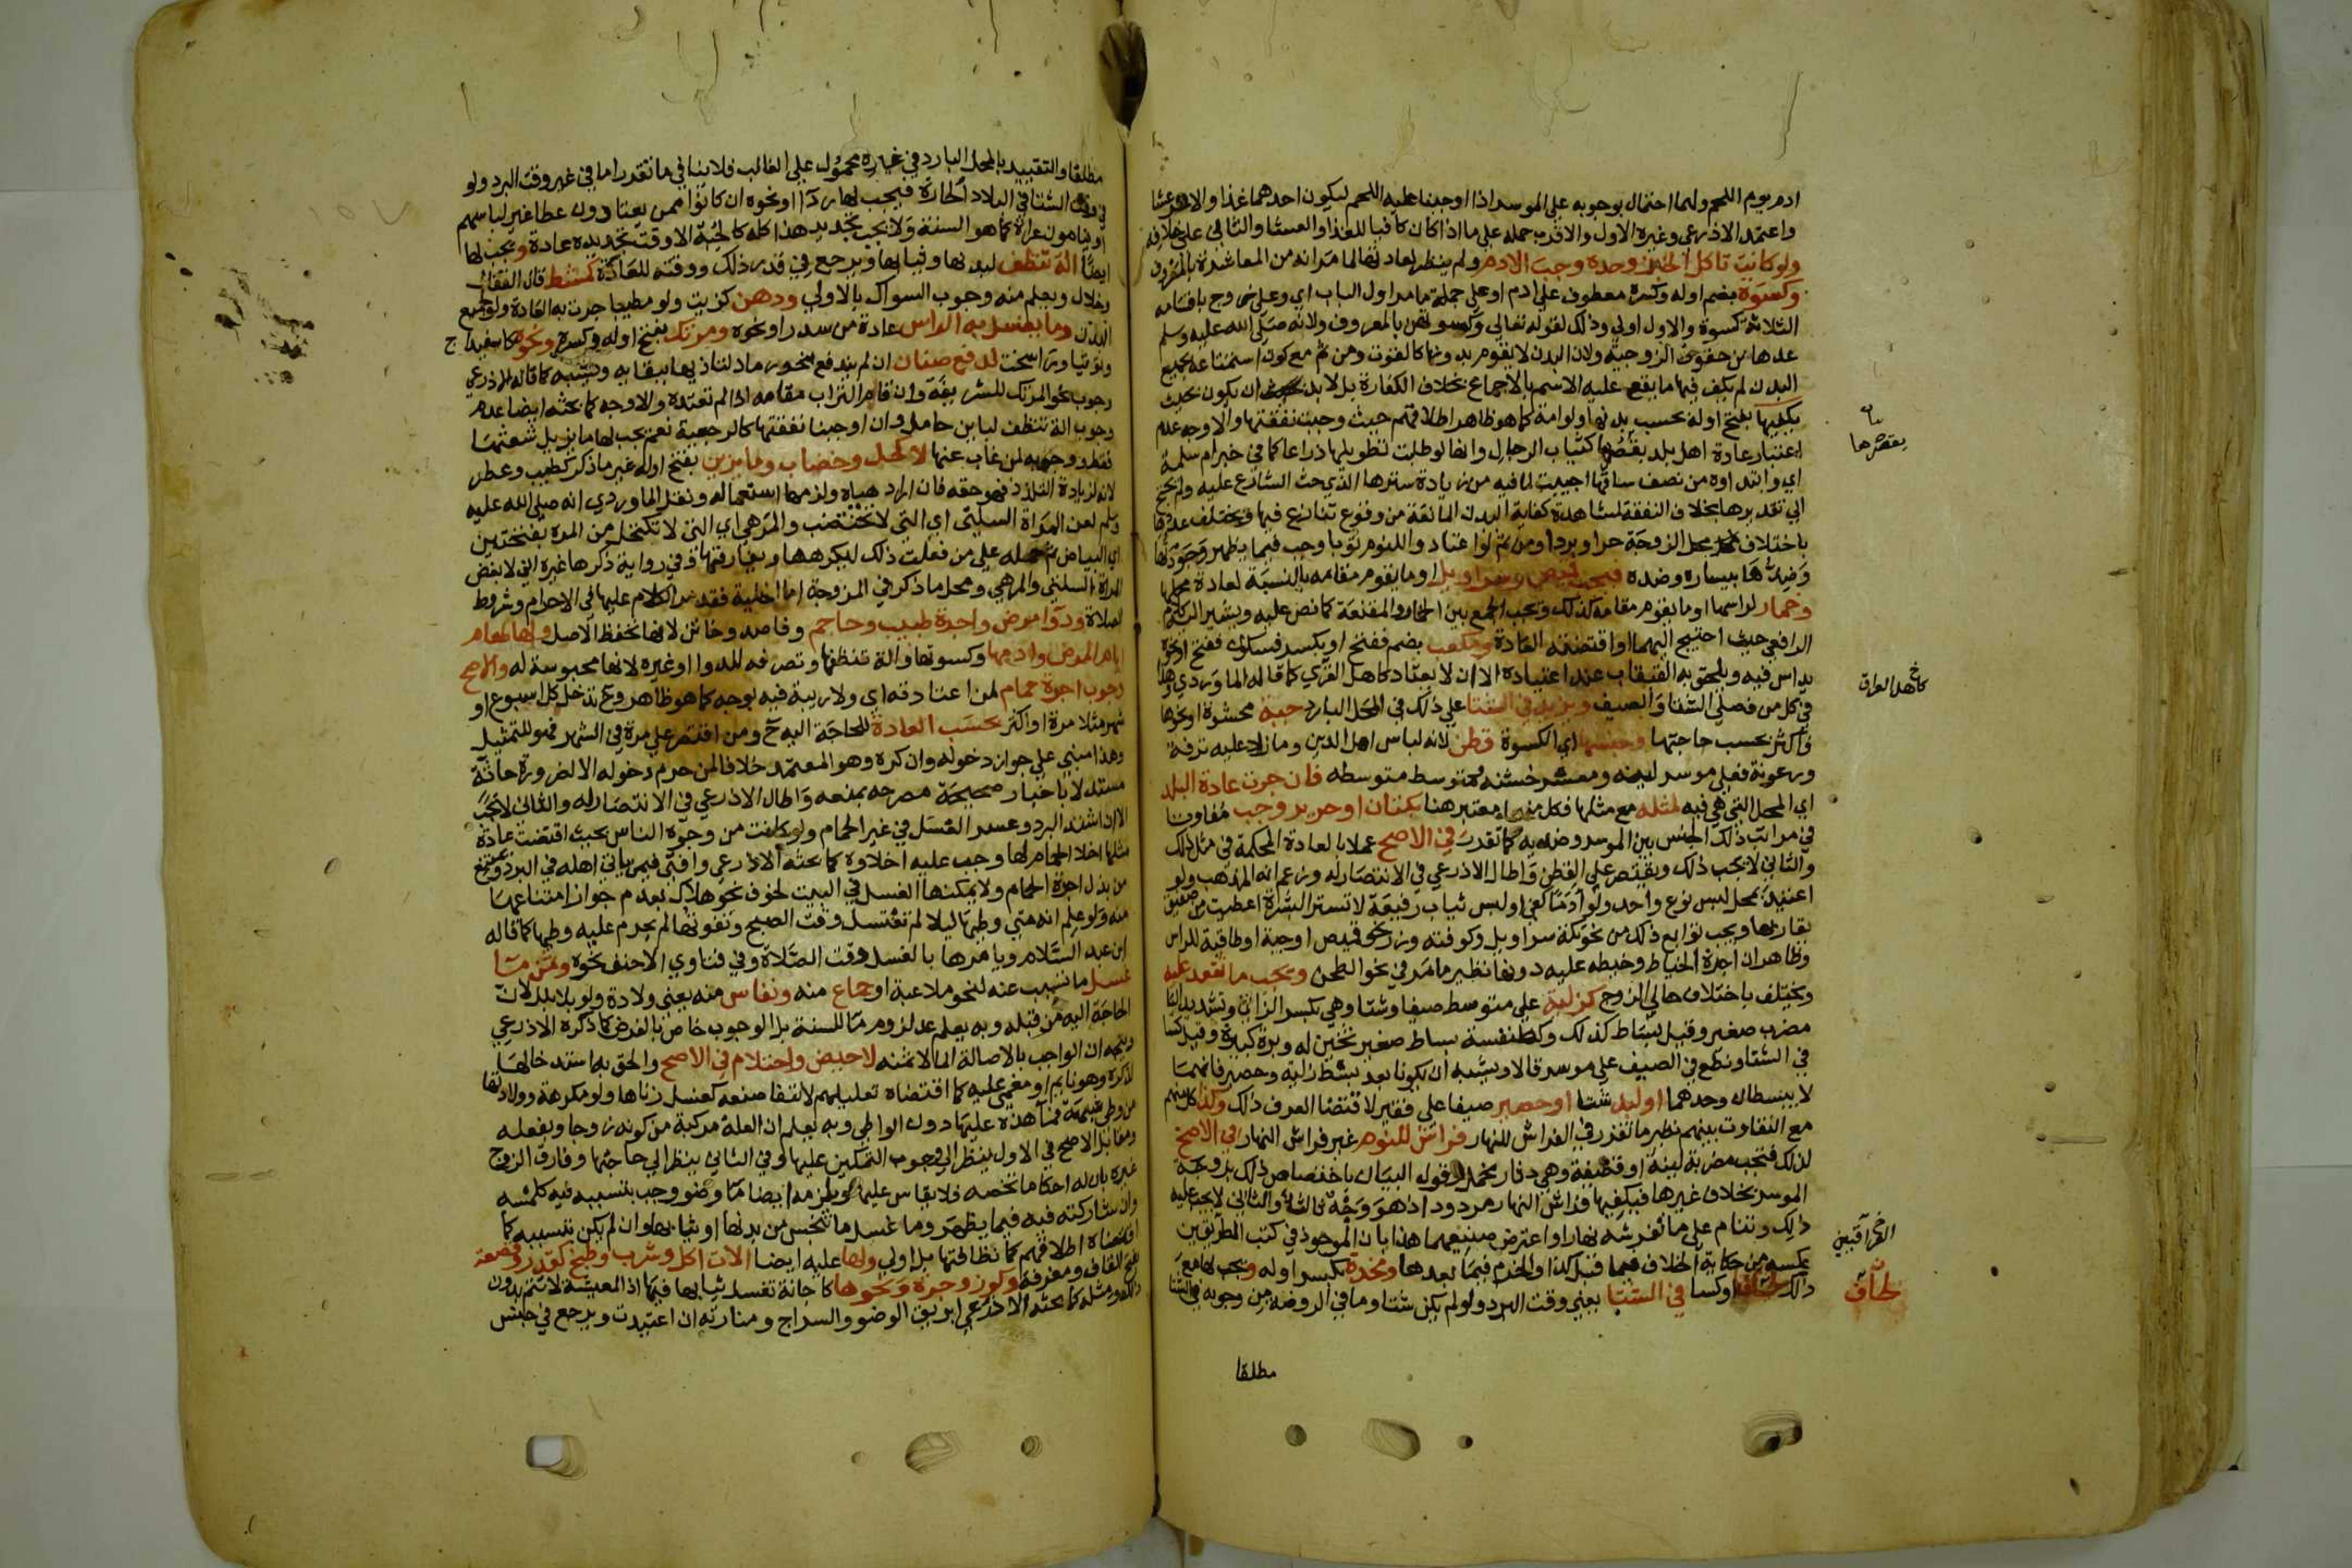 ادم يوم اللحم ولهما احتمال بوجوبه على الموسر اذا اوجبنا عليه اللحم ليكون احدهما غذا والاخر عشا
واعتمد الاذرعي وغيره الاول والاقرب حمله على ما اذا كان كافيا للغذا والعشا والثاني على خلافه
ولو كانت تاكل الخبز وحده وجب الادم ولم ينظر لعادتها لما مر انه من المعاشرة بالمعروف
وكسوة بضم اوله وكسره معطوف على ادم او على جملة ما مر اول الباب اي وعلى زوج باقسامه
الثلاثة كسوة والاول اولى وذلك لقوله تعالى وكسوتهن بالمعروف ولانه صلى الله عليه وسلم
عدها من حقوق الزوجية ولان البدن لا يقوم بدونها كالقوت ومن ثم مع كون استمتاعه بجميع
البدن لم يكف فيها ما يقع عليه الاسم بالاجماع بخلاف الكفارة بل لا بد ان يكون بحيث
يكفيها بفتح اوله بحسب بدنها ولو امة كما هو ظاهر اطلاقهم حيث وجبت نفقتها والاوجه عدم
اعتبار عادة اهل بلد بقصرها كثياب الرجال وانها لو طلبت تطويلها ذراعا كما في خبر ام سلمة
اي وابتداوه من نصف ساقها اجيبت لما فيه من زيادة سترها الذي حث الشارع عليه ولم يحتج
الى تقديرها بخلاف النفقة لمشاهدة كفاية البدن المانعة من وقوع تنازع فيها ويختلف عددها
باختلاف محل الزوجة حرا وبردا ومن ثم لو اعتادوا للنوم ثوبا وجب فيما يظهر وجودتها
وضدها بيساره وضده فيجب قميص وسراويل او ما يقوم مقامه بالنسبة لعادة محلها
وخمار لراسها او ما يقوم مقامه كذلك ويجب الجمع بين الخمار والمقنعة كما نص عليه ويشير اليه كلام
الرافعي حيث احتيج اليهما او اقتضته العادة ومكعب بضم ففتح او بكسر فسكون ففتح او نحوه
يداس فيه ويلحق به القبقاب عند اعتياده الا ان لا يعتاد كاهل القرى كما قاله الماوردي وهذا
في كل من فصلي الشتا والصيف ويزيد في الشتا على ذلك في المحل البارد جبة محشوة او نحوها
واكثر بحسب حاجتها وجنسها اي الكسوة قطن لانه لباس اهل الدين وما زاد عليه ترفه
ورعونة فعلى موسر لينه ومعسر خشنه ومتوسط متوسطه فان جرت عادة البلد
اي المحل التي هي فيه لمثله مع مثلها فكل منهما معتبر هنا بكتان او حرير وجب مفاوتا
في مراتب ذلك الجنس بين الموسر وضديه كما تقدر في الاصح عملا بالعادة المحكمة في مثل ذلك
والثاني لا يجب ذلك ويقتصر على القطن واطال الاذرعي في الانتصار له وزعم انه المذهب ولو
اعتيد بمحل لبس نوع واحد ولو ادما كفى او لبس ثياب رفيعة لا تستر البشرة اعطيت من صفيق
يقاربها ويجب توابع ذلك من نحو تكة سراويل وكوفية وزر نحو قميص او جبة او طاقية للراس
وظاهر ان اجرة الخياط وخيطه عليه دونها نظير ما مر في نحو الطحن ويجب ما تقعد عليه
ويختلف باختلاف حالي الزوج كزلية على متوسط صيفا وشتا وهي بكسر الزاي وتشديد اليا
مضرب صغير وقيل بساط كذلك وكطنفسة بساط صغير ثخين له وبرة كبيرة وقيل كسا
في الشتا ونطع في الصيف على موسر قالا ويشبه ان يكونا بعد بسط زلية وحصير فانهما
لا يبسطان وحدهما او لبد شتا او حصير صيفا على فقير لاقتضا العرف ذلك وكذا كل منهم
مع التفاوت بينهم نظير ما تقرر في الفراش للنهار فراش للنوم غير فراش النهار في الاصح
لذلك فتجب مضربة لينة او قطيفة وهي دثار مخمل وقول البيان باختصاص ذلك بزوجة
الموسر بخلاف غيرها فيكفيها فراش النهار مردود اذ هو وجه ثالث والثاني لا يجب عليه
ذلك وتنام على ما تفرشه نهارا واعترض صنيعهما هذا بان الموجود في كتب الطريقين
عكسه من حكاية الخلاف فيما قبل كذا والجزم فيما بعدها ومخدة بكسر اوله ويجب لها مع
ذلك لحاف او كسا في الشتا يعني وقت البرد ولو لم يكن شتا وما في الروضة من وجوبه في الشتا
مطلقا
يقصرها
كاهل العراق
لحاف
مطلقا والتقييد بالمحل البارد في غيره محمول على الغالب فلا ينافي ما تقدر اما في غير وقت البرد ولو
في وقت الشتا في البلاد الحارة فيجب لها ردآ او نحوه ان كانوا ممن يعتادون عطا غير لباسهم
او ينامون عراة كما هو السنة ولا يجب تجديد هذا كله كالجبة الا وقت تجديده عادة ويجب لها
ايضا الة تنظف لبدنها وثيابها ويرجع في قدر ذلك ووقته للعادة كمشط قال القفال
وخلال ويعلم منه وجوب السواك بالاولى ودهن كزيت ولو مطيبا جرت به العادة ولو لجميع
البدن وما يغسل به الراس عادة من سدر او نحوه ومرتك بفتح اوله وكسره ونحوه كاسفيداج
وتوتيا وراسخت لدفع صنان ان لم يندفع بنحو رماد لتاذيها ببقايه ويشبه كما قاله الاذرعي
وجوب نحو المرتك للشريفة وان قام التراب مقامه اذا لم تعتده والاوجه كما بحثه ايضا عدم
وجوب الة تنظف لباين حامل وان اوجبنا نفقتها كالرجعية نعم يجب لها ما يزيل شعثها
فقط ووجوبه لمن غاب عنها لا كحل وخضاب وما يزين بفتح اوله غير ما ذكر كطيب وعطر
لانه لزيادة التلذذ فهو حقه فان اراد هياه ولزمها استعماله ونقل الماوردي انه صلى الله عليه
وسلم لعن المراة السلتى اي التي لا تختضب والمرهى اي التي لا تكتحل من المره بفتحتين
اي البياض ثم حمله على من فعلت ذلك ليكرهها ويفارقها وفي رواية ذكرها غيره اني لابغض
المراة السلتى والمرهى ومحل ما ذكر في المزوجة اما الخلية فقد مر الكلام عليها في الاحرام وشروط
الصلاة ودوآ مرض واجرة طبيب وحاجم وفاصد وخاتن لانها لحفظ الاصل ولها طعام
ايام المرض وادمها وكسوتها والة تنظفها وتصرفه للدوا او غيره لانها محبوسة له والاصح
وجوب اجرة حمام لمن اعتادته اي ولا ريبة فيه بوجه كما هو ظاهر وح تدخل كل اسبوع او
شهر مثلا مرة او اكثر بحسب العادة للحاجة اليه ح ومن اقتصر على مرة في الشهر فهو للتمثيل
وهذا مبني على جواز دخوله وان كره وهو المعتمد خلافا لمن حرم دخوله الا لضرورة حاثة
مستدلا باخبار صحيحة مصرحه بمنعه واطال الاذرعي في الانتصار له والثاني لا تجب
الا ان اشتد البرد وعسر الغسل في غير الحمام ولو كانت من وجوه الناس بحيث اقتضت عادة
مثلها اخلا الحمام لها وجب عليه اخلاوه كما بحثه الاذرعي وافتى فيمن ياتي اهله في البرد ويمتنع
من بذل اجرة الحمام ولا يمكنها الغسل في البيت لخوف نحو هلاك بعدم جواز امتناعها
منه ولو علم انه متى وطيها ليلا لم تغتسل وقت الصبح وتفوتها لم يحرم عليه وطيها كما قاله
ابن عبد السلام ويامرها بالغسل وقت الصلاة وفي فتاوي الاحنف نحوه وثمن ما
غسل ما تسبب عنه لنحو ملاعبة او جماع منه ونفاس منه يعني ولادة ولو بلا بلل لان
الحاجة اليه من قبله وبه يعلم عدم لزوم ما للسنة بل الوجوب خاص بالفرض كما ذكره الاذرعي
ويتجه ان الواجب بالاصالة الما لا ثمنه لا حيض واحتلام في الاصح والحق به استدخالها
لذكره وهو نايم او مغمى عليه كما اقتضاه تعليلهم لانتفا صنعه كغسل زناها ولو مكرهة وولادتها
من وطي شبهة فما هذه عليها دون الواطي وبه يعلم ان العلة مركبة من كونه زوجا وبفعله
ومقابل الاصح في الاول ينظر الى وجوب التمكين عليها وفي الثاني ينظر الى حاجتها وفارق الزوج
غيره بان له احكاما تخصه فلا يقاس عليها ويلزمه ايضا ما وضو وجب بتسببه فيه كلمسه
وان شاركته فيه فيما يظهر وما غسل ما تنجس من بدنها او ثيابها وان لم يكن بتسببه كما
اقتضاه اطلاقهم كما نظافتها بل اولى ولها عليه ايضا الات اكل وشرب وطبخ كقدر وقصعة
بفتح القاف ومغرفة وكوز وجرة ونحوها كاجانة تغسل ثيابها فيها اذ المعيشة لا تتم بدون
ذلك ومثله كما بحثه الاذرعي ابريق الوضو والسراج ومنارته ان اعتيدت ويرجع في جنس